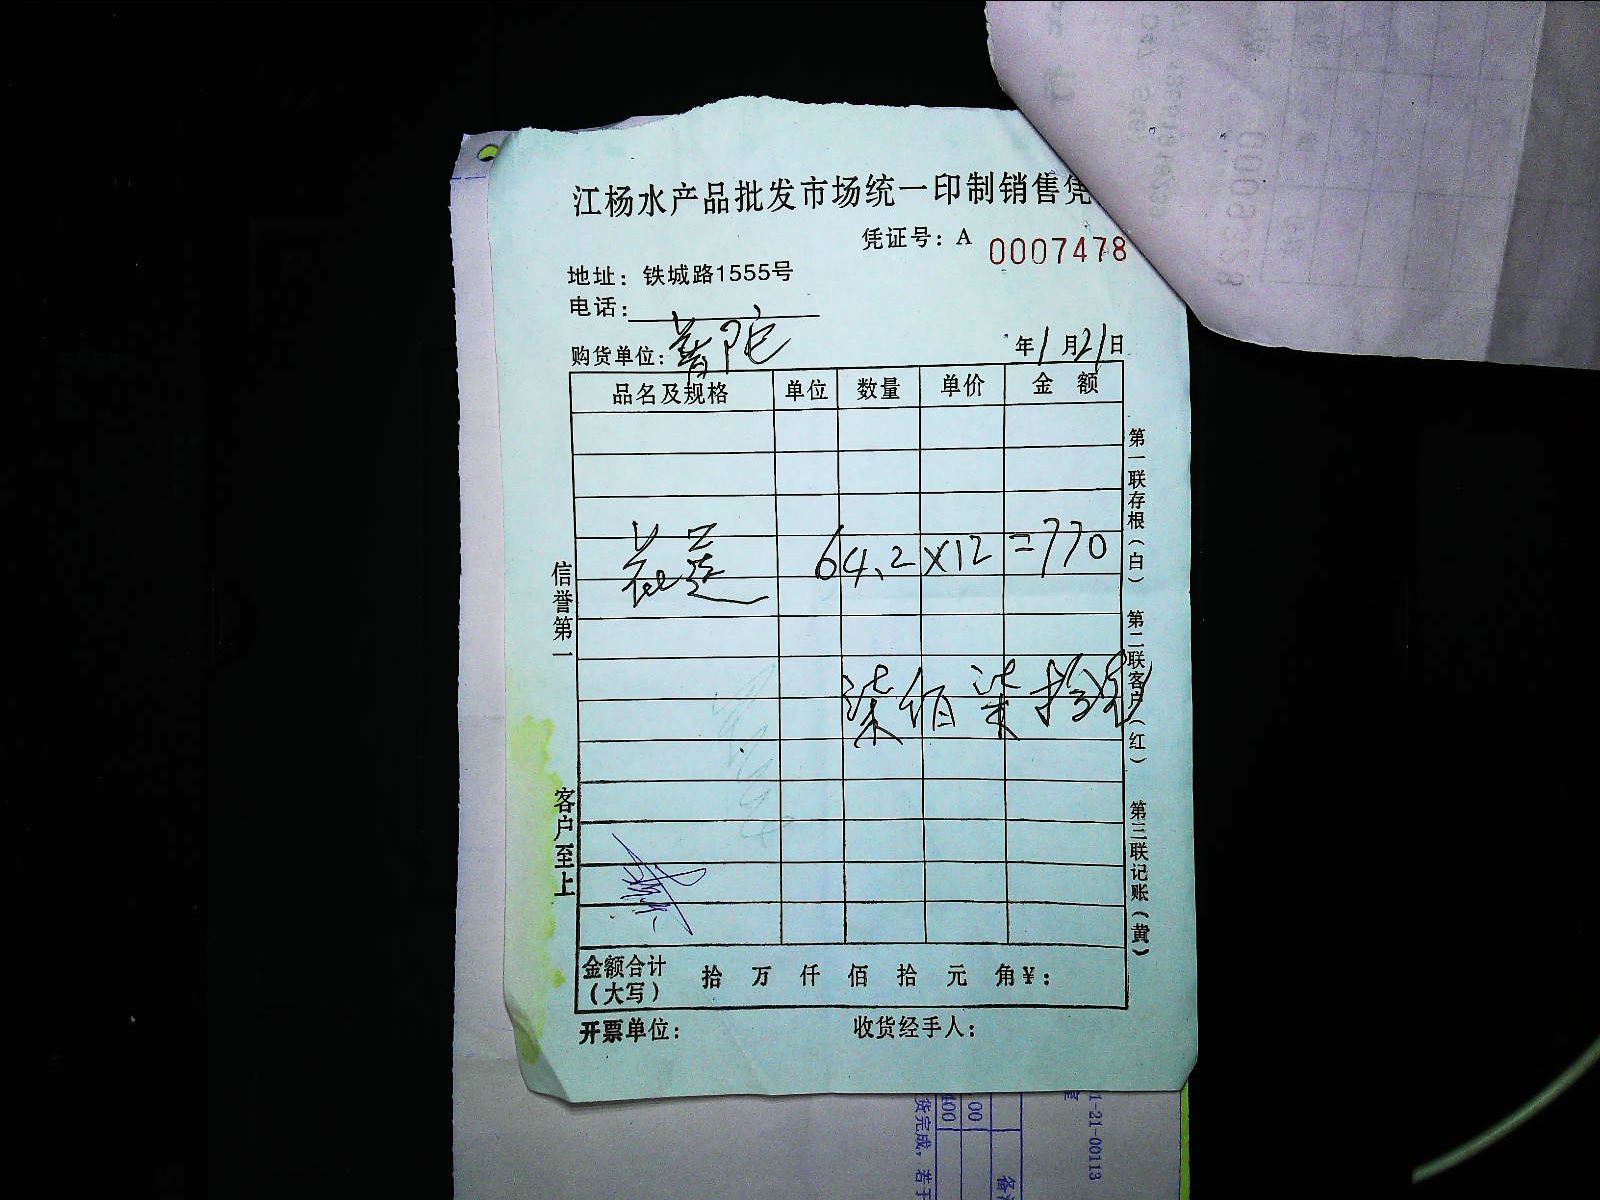 江杨水产品批发市场统一印制销售凭
凭证号：A 0007478
地址：铁城路1555号
电话：
购货单位：普陀 年1月21日
品名及规格 单位 数量 单价 金额
花莲 64.2×12=770
柒佰柒拾
金额合计（大写） 拾 万 仟 佰 拾 元 角¥：
开票单位： 收货经手人：
信誉第一
客户至上
第一联存根（白） 第二联客户（红） 第三联记账（黄）
1-21-00113
货完成，若于